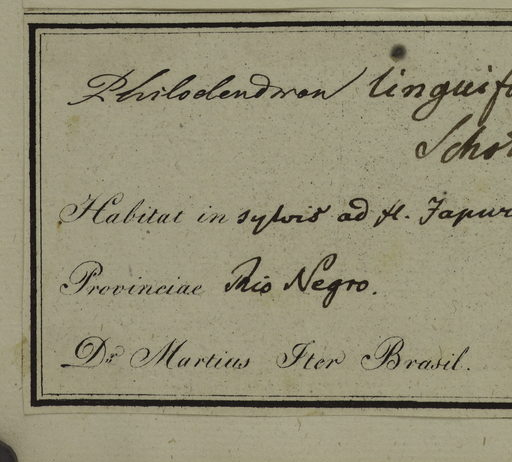 Philodendron linguifo
Schot
Habitat in sylvis ad fl. Japur
Provinciae Rio Negro.
Dr. Martius Iter Brasil.